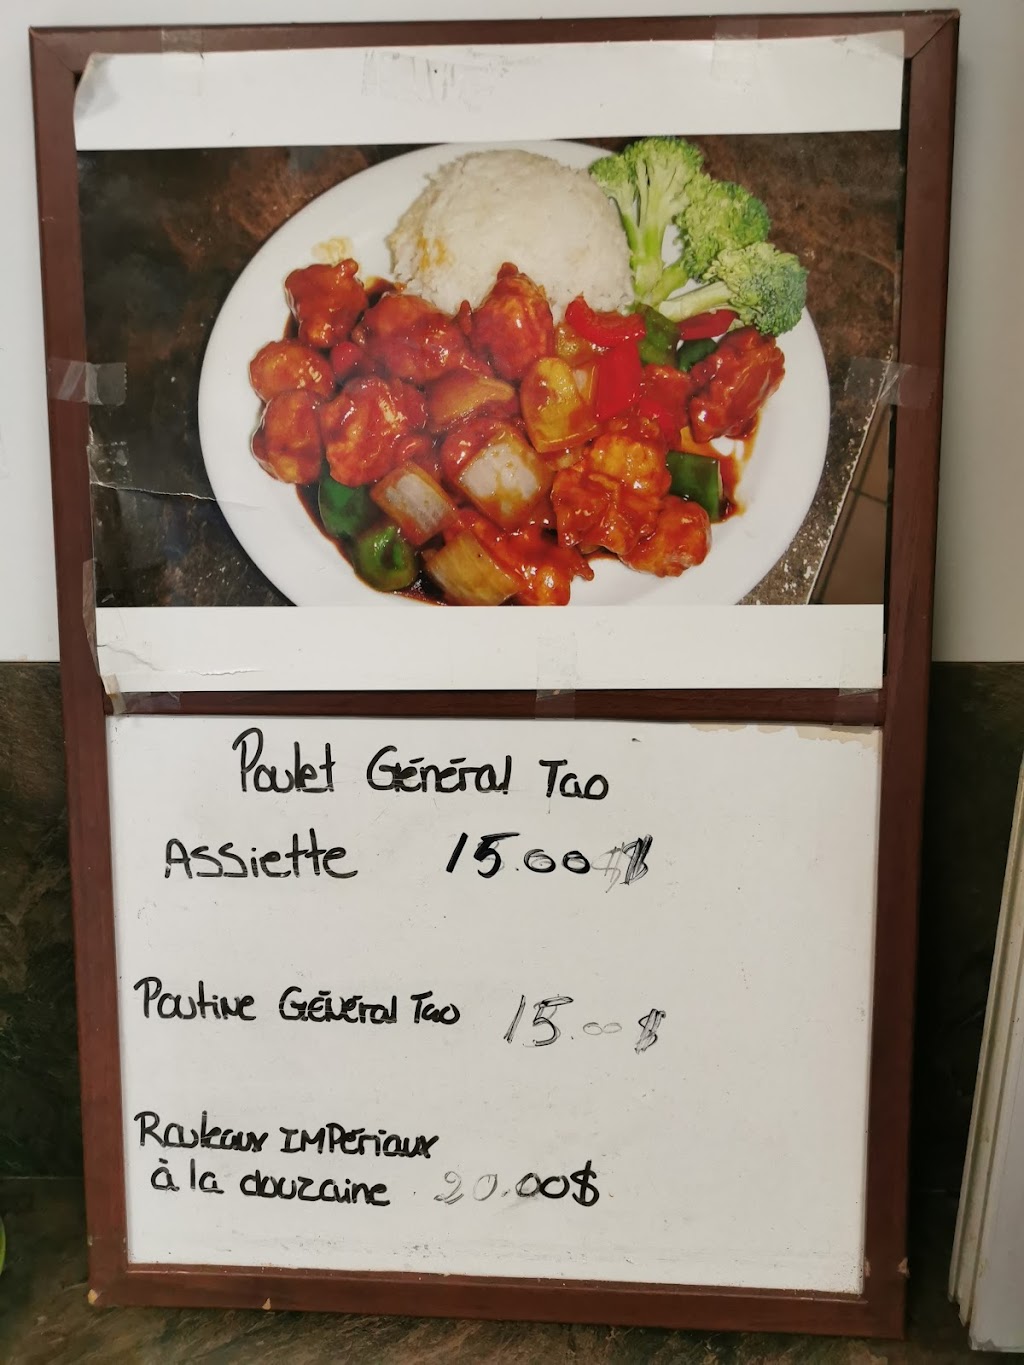 Poulet Général Tao
Assiette 15.00$
Poutine Général Tao 15.00$
Rouleaux Impériaux
à la douzaine 20.00$